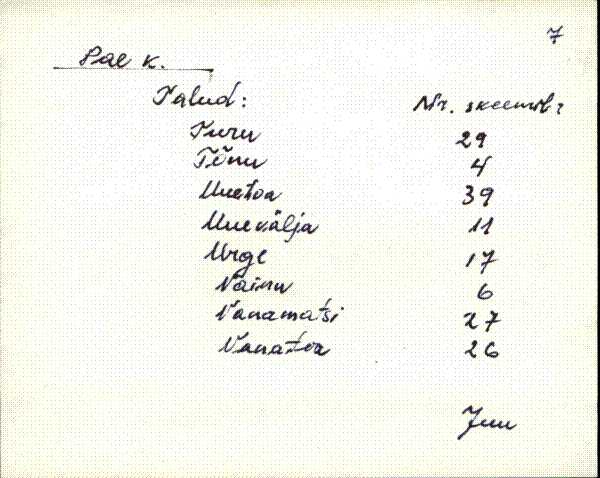 7
Pae k.
Talud: Nr. skeemil:
Turu 29
Tõnu 4
Uuetoa 39
Uuevälja 11
Urge 17
Väinu 6
Vanamatsi 27
Vanatoa 26